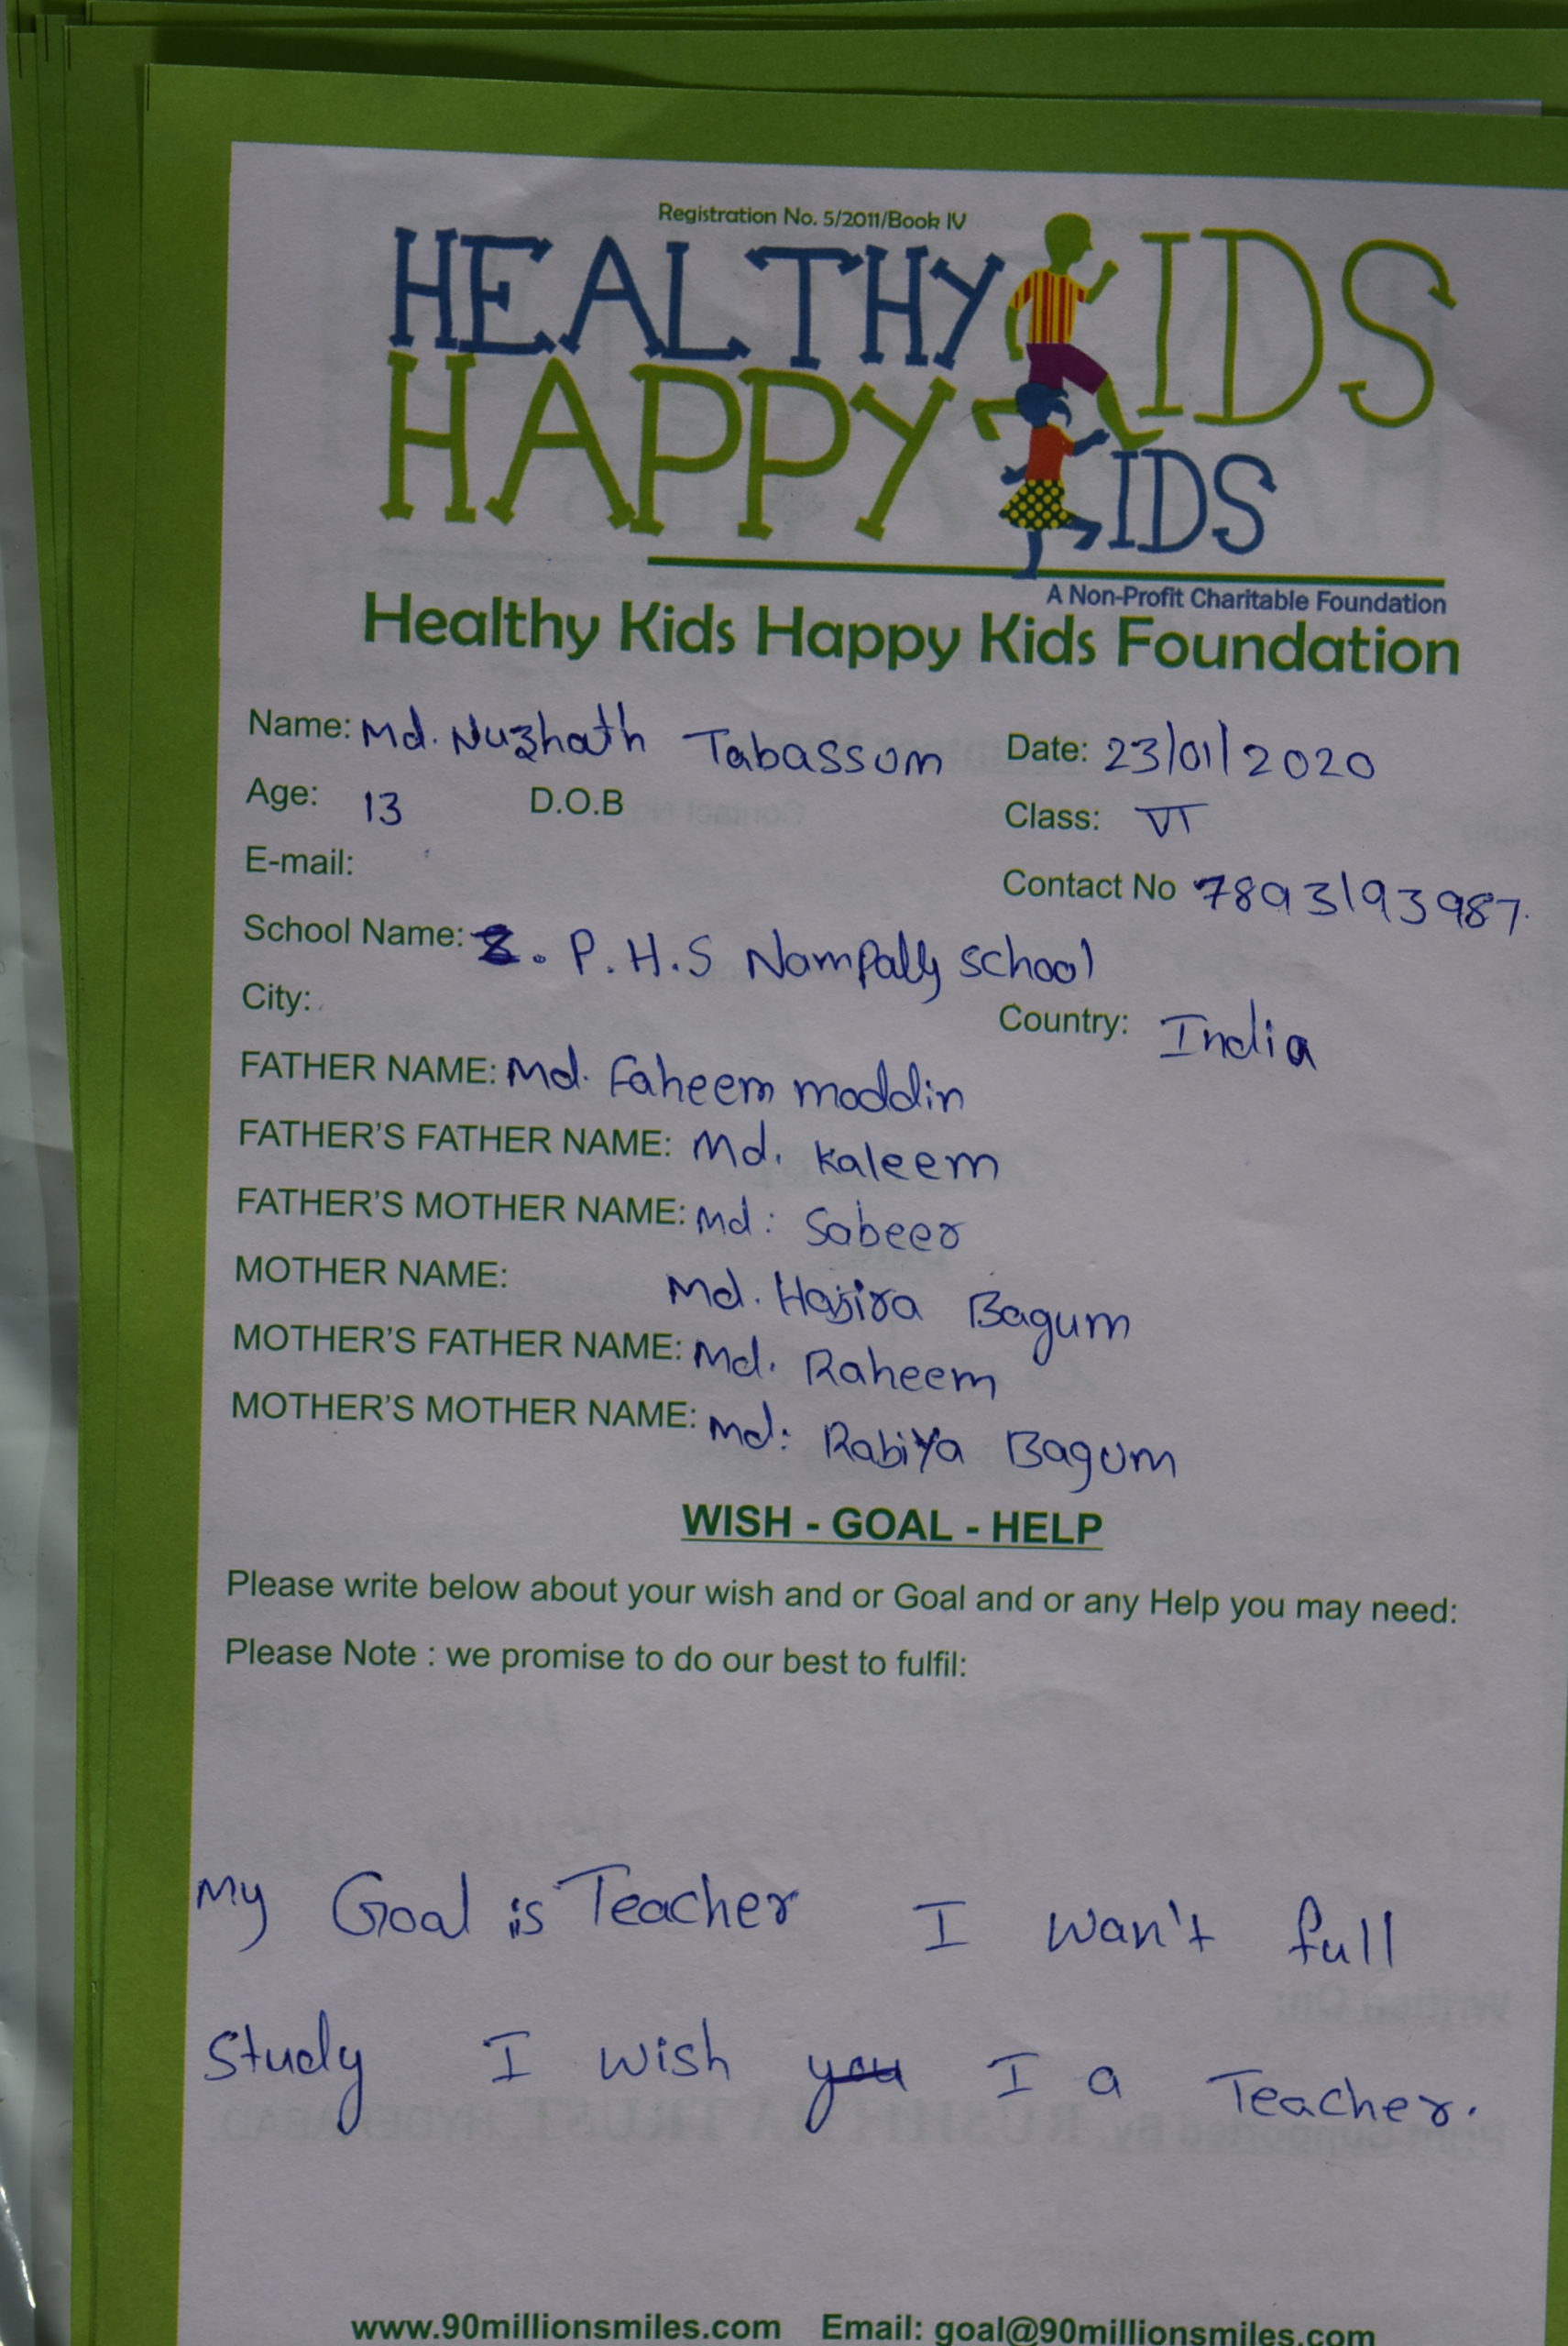 Registration No. 5/2011/Book IV
HEALTHY KIDS
HAPPY KIDS
A Non-Profit Charitable Foundation
Healthy Kids Happy Kids Foundation
Name: Md. Nuzhath Tabassum Date: 23/01/2020
Age: 13 D.O.B Class: VI
E-mail: Contact No 7893193987.
School Name: Z. P. H. S Nampally school
City: Country: India
FATHER NAME: Md. Faheem moddin
FATHER'S FATHER NAME: Md. Kaleem
FATHER'S MOTHER NAME: Md: Sabeer
MOTHER NAME: Md. Hajira Bagum
MOTHER'S FATHER NAME: Md. Raheem
MOTHER'S MOTHER NAME: Md: Rabiya Bagum
WISH - GOAL - HELP
Please write below about your wish and or Goal and or any Help you may need:
Please Note : we promise to do our best to fulfil:
My Goal is Teacher I wan't full
study I wish you I a Teacher.
www.90millionsmiles.com Email: goal@90millionsmiles.com